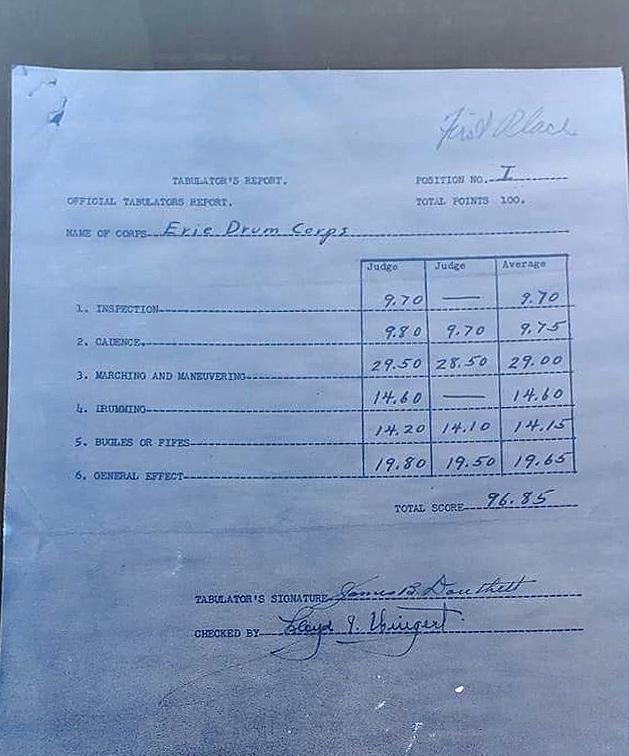 First Place
TABULATOR'S REPORT.
POSITION NO. I
OFFICIAL TABULATORS REPORT.
TOTAL POINTS 100.
NAME OF CORPS Erie Drum Corps
Judge Judge Average
1. INSPECTION 9.70 — 9.70
2. CADENCE. 9.80 9.70 9.75
3. MARCHING AND MANEUVERING 29.50 28.50 29.00
4. DRUMMING 14.60 — 14.60
5. BUGLES OR FIFES 14.20 14.10 14.15
6. GENERAL EFFECT 19.80 19.50 19.65
TOTAL SCORE 96.85
TABULATOR'S SIGNATURE James B. Douthett
CHECKED BY Lloyd I. Wingert